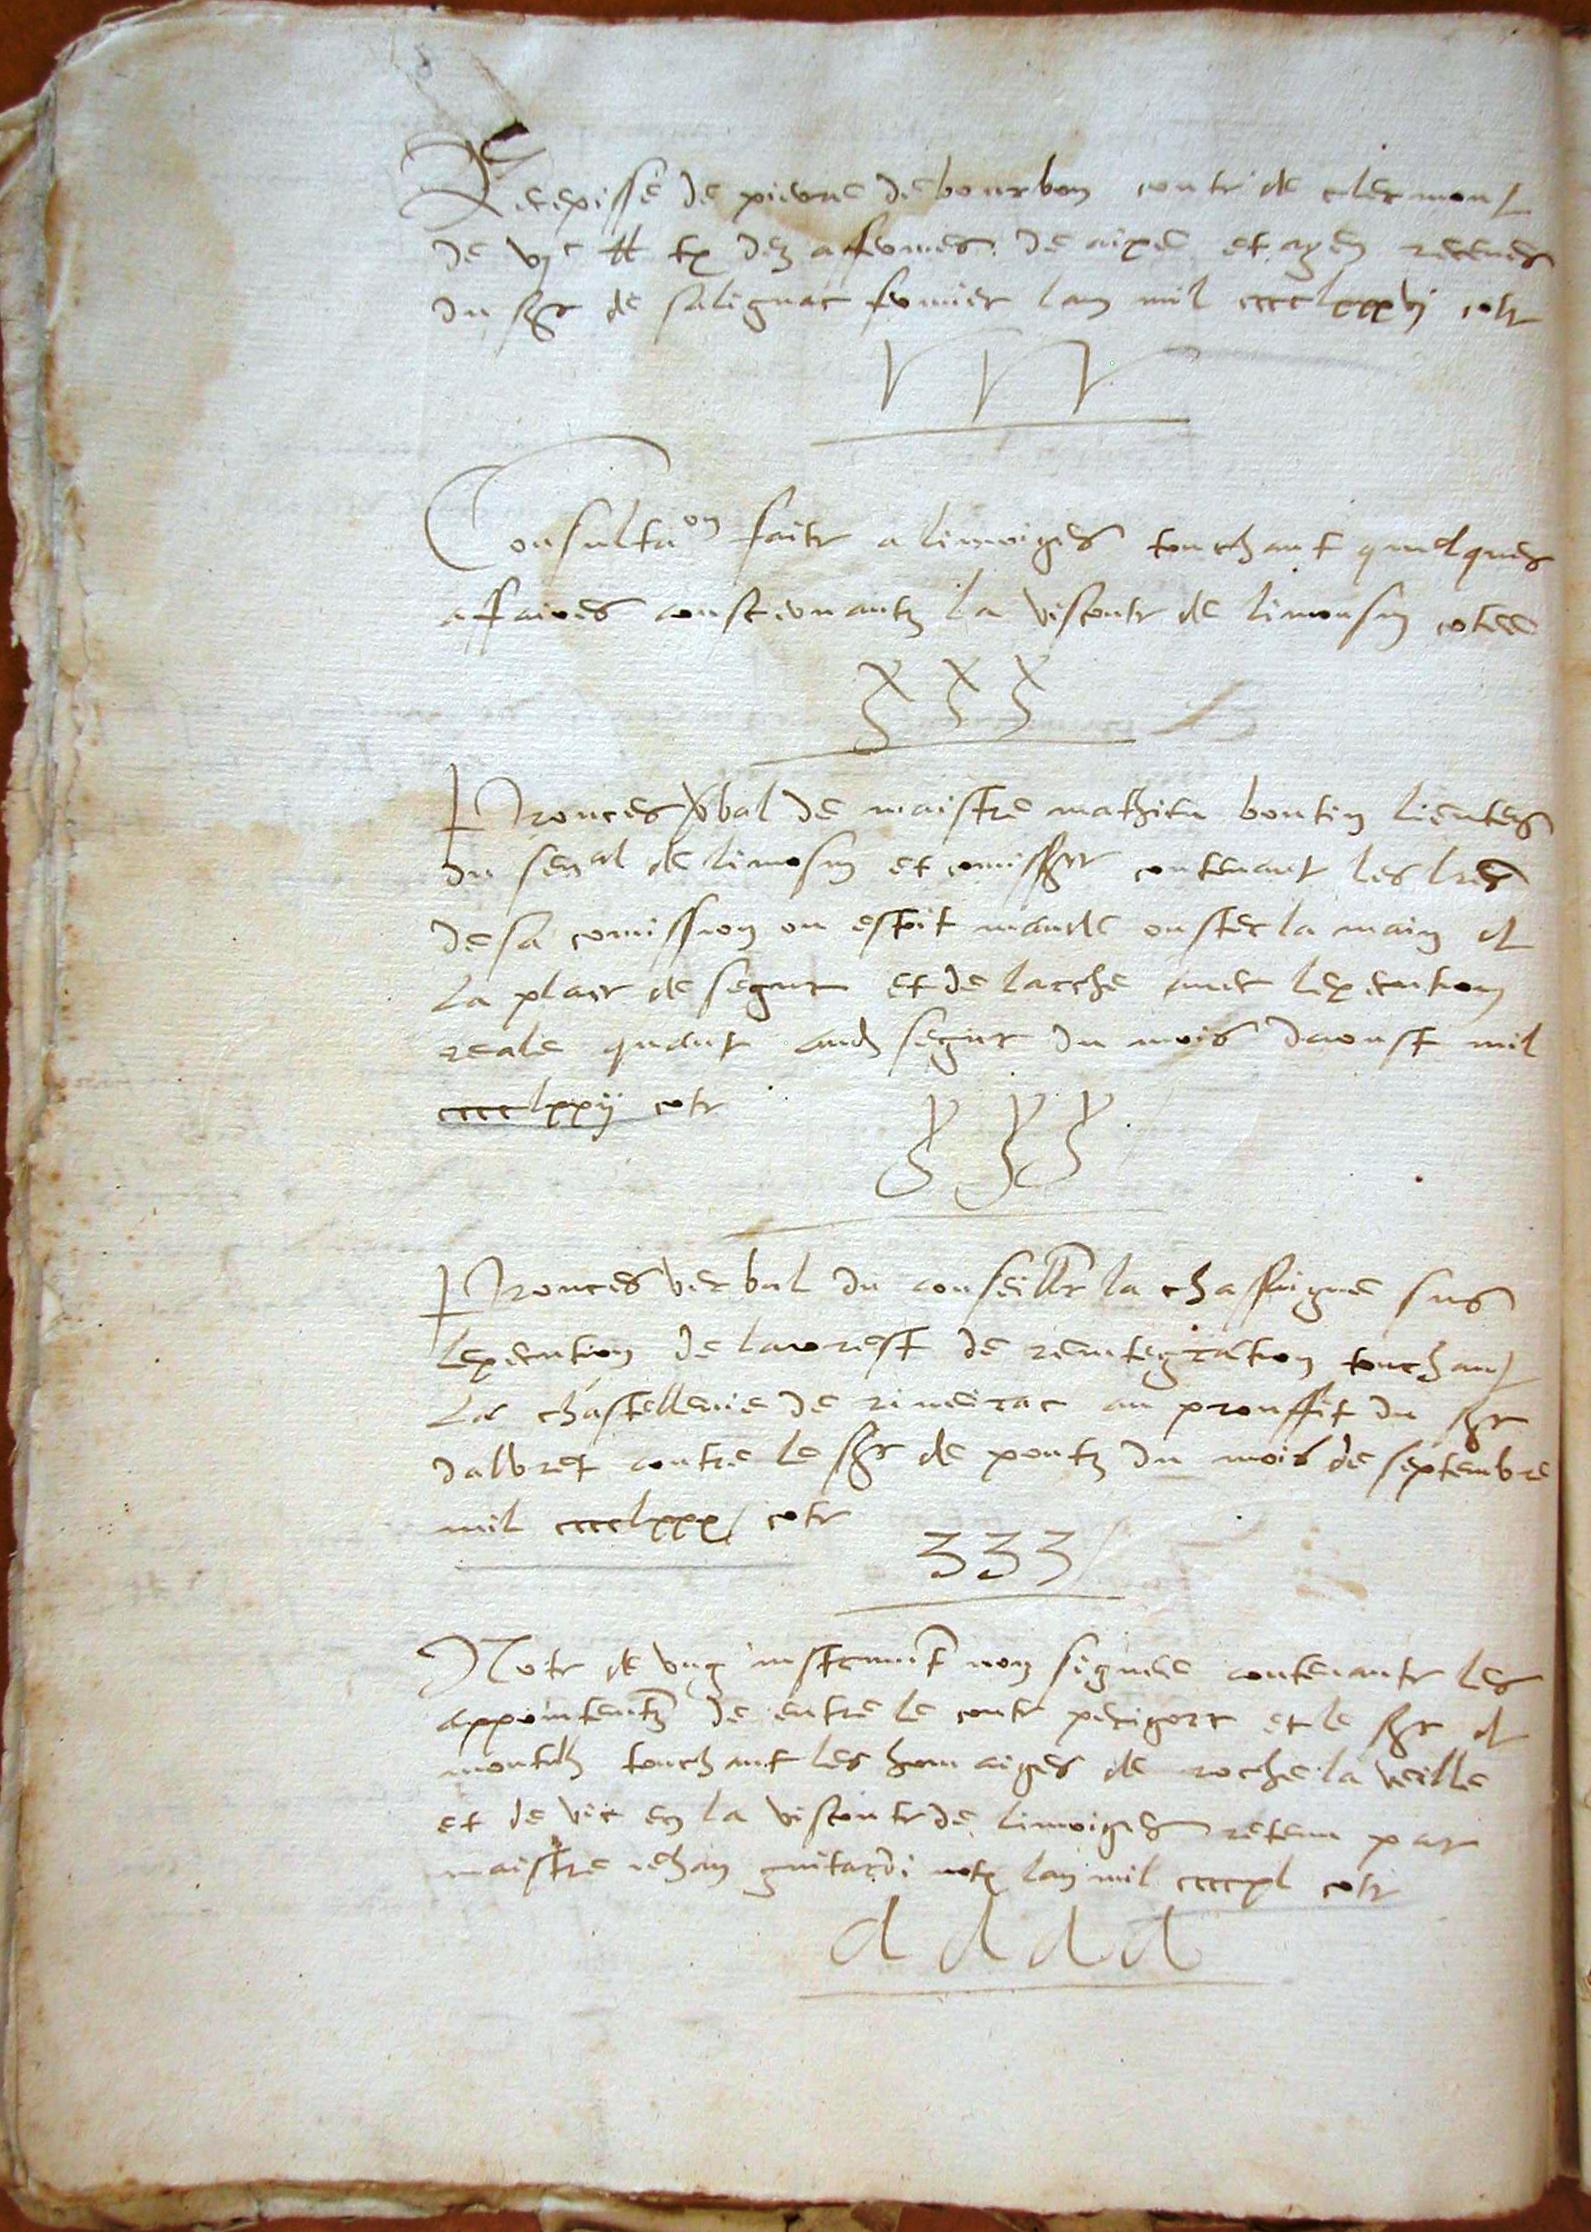 Recepisse de pierre de bourbon conte de clermont
de vjc ₶ tz des affermes de aixe et agen receues
du sgr de salignac fermier lan mil cccclxxxvj cote
v v v
Consultaon faite a limoiges touchant quelques
affaires conscernantz la visconte de limousin cotee
x x x
Prouces vbal de maistre mathieu boutin lieuten
du senal de limosin et comissre contenant les lres
de sa comission ou estoit mande ouster la main d
la place de segur et de lacche avec lexecution
reale quant aud segur du mois daoust mil
cccclxxij cote
y y y
Prouces verbal du conseillr la chassaigne sus
lexecution de larrest de reintegration touchant
La chastellenie de rineirac au prouffit du sgr
dalbret contre le sgr de pontz du mois de septembre
mil cccclxxx cote
3 3 3
Note de ung instrumt non signee contenante les
appointentz de entre le conte perigort et le sgr d
montd touchant les homaiges de roche la veille
et de vic en la visconte de limoiges retenu par
maistre iehan guitardi notz lan mil ccccxl cote
d d d d